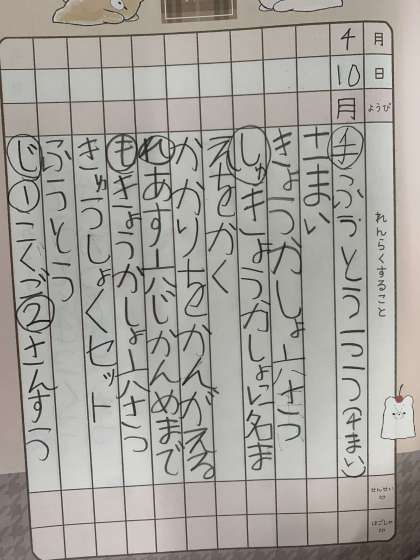 月 日 ようび れんらくすること せんせい印 ほごしゃ印
4 10 月 手 ふうとう一つ(4まい)
十一まい
きょうかしょ六さつ
しゅ きょうかしょに名ま
えをかく
かかりをかんがえる
れ あす六じかんめまで
も きょうかしょ六さつ
きゅうしょくセット
ふうとう
じ ①こくご②さんすう